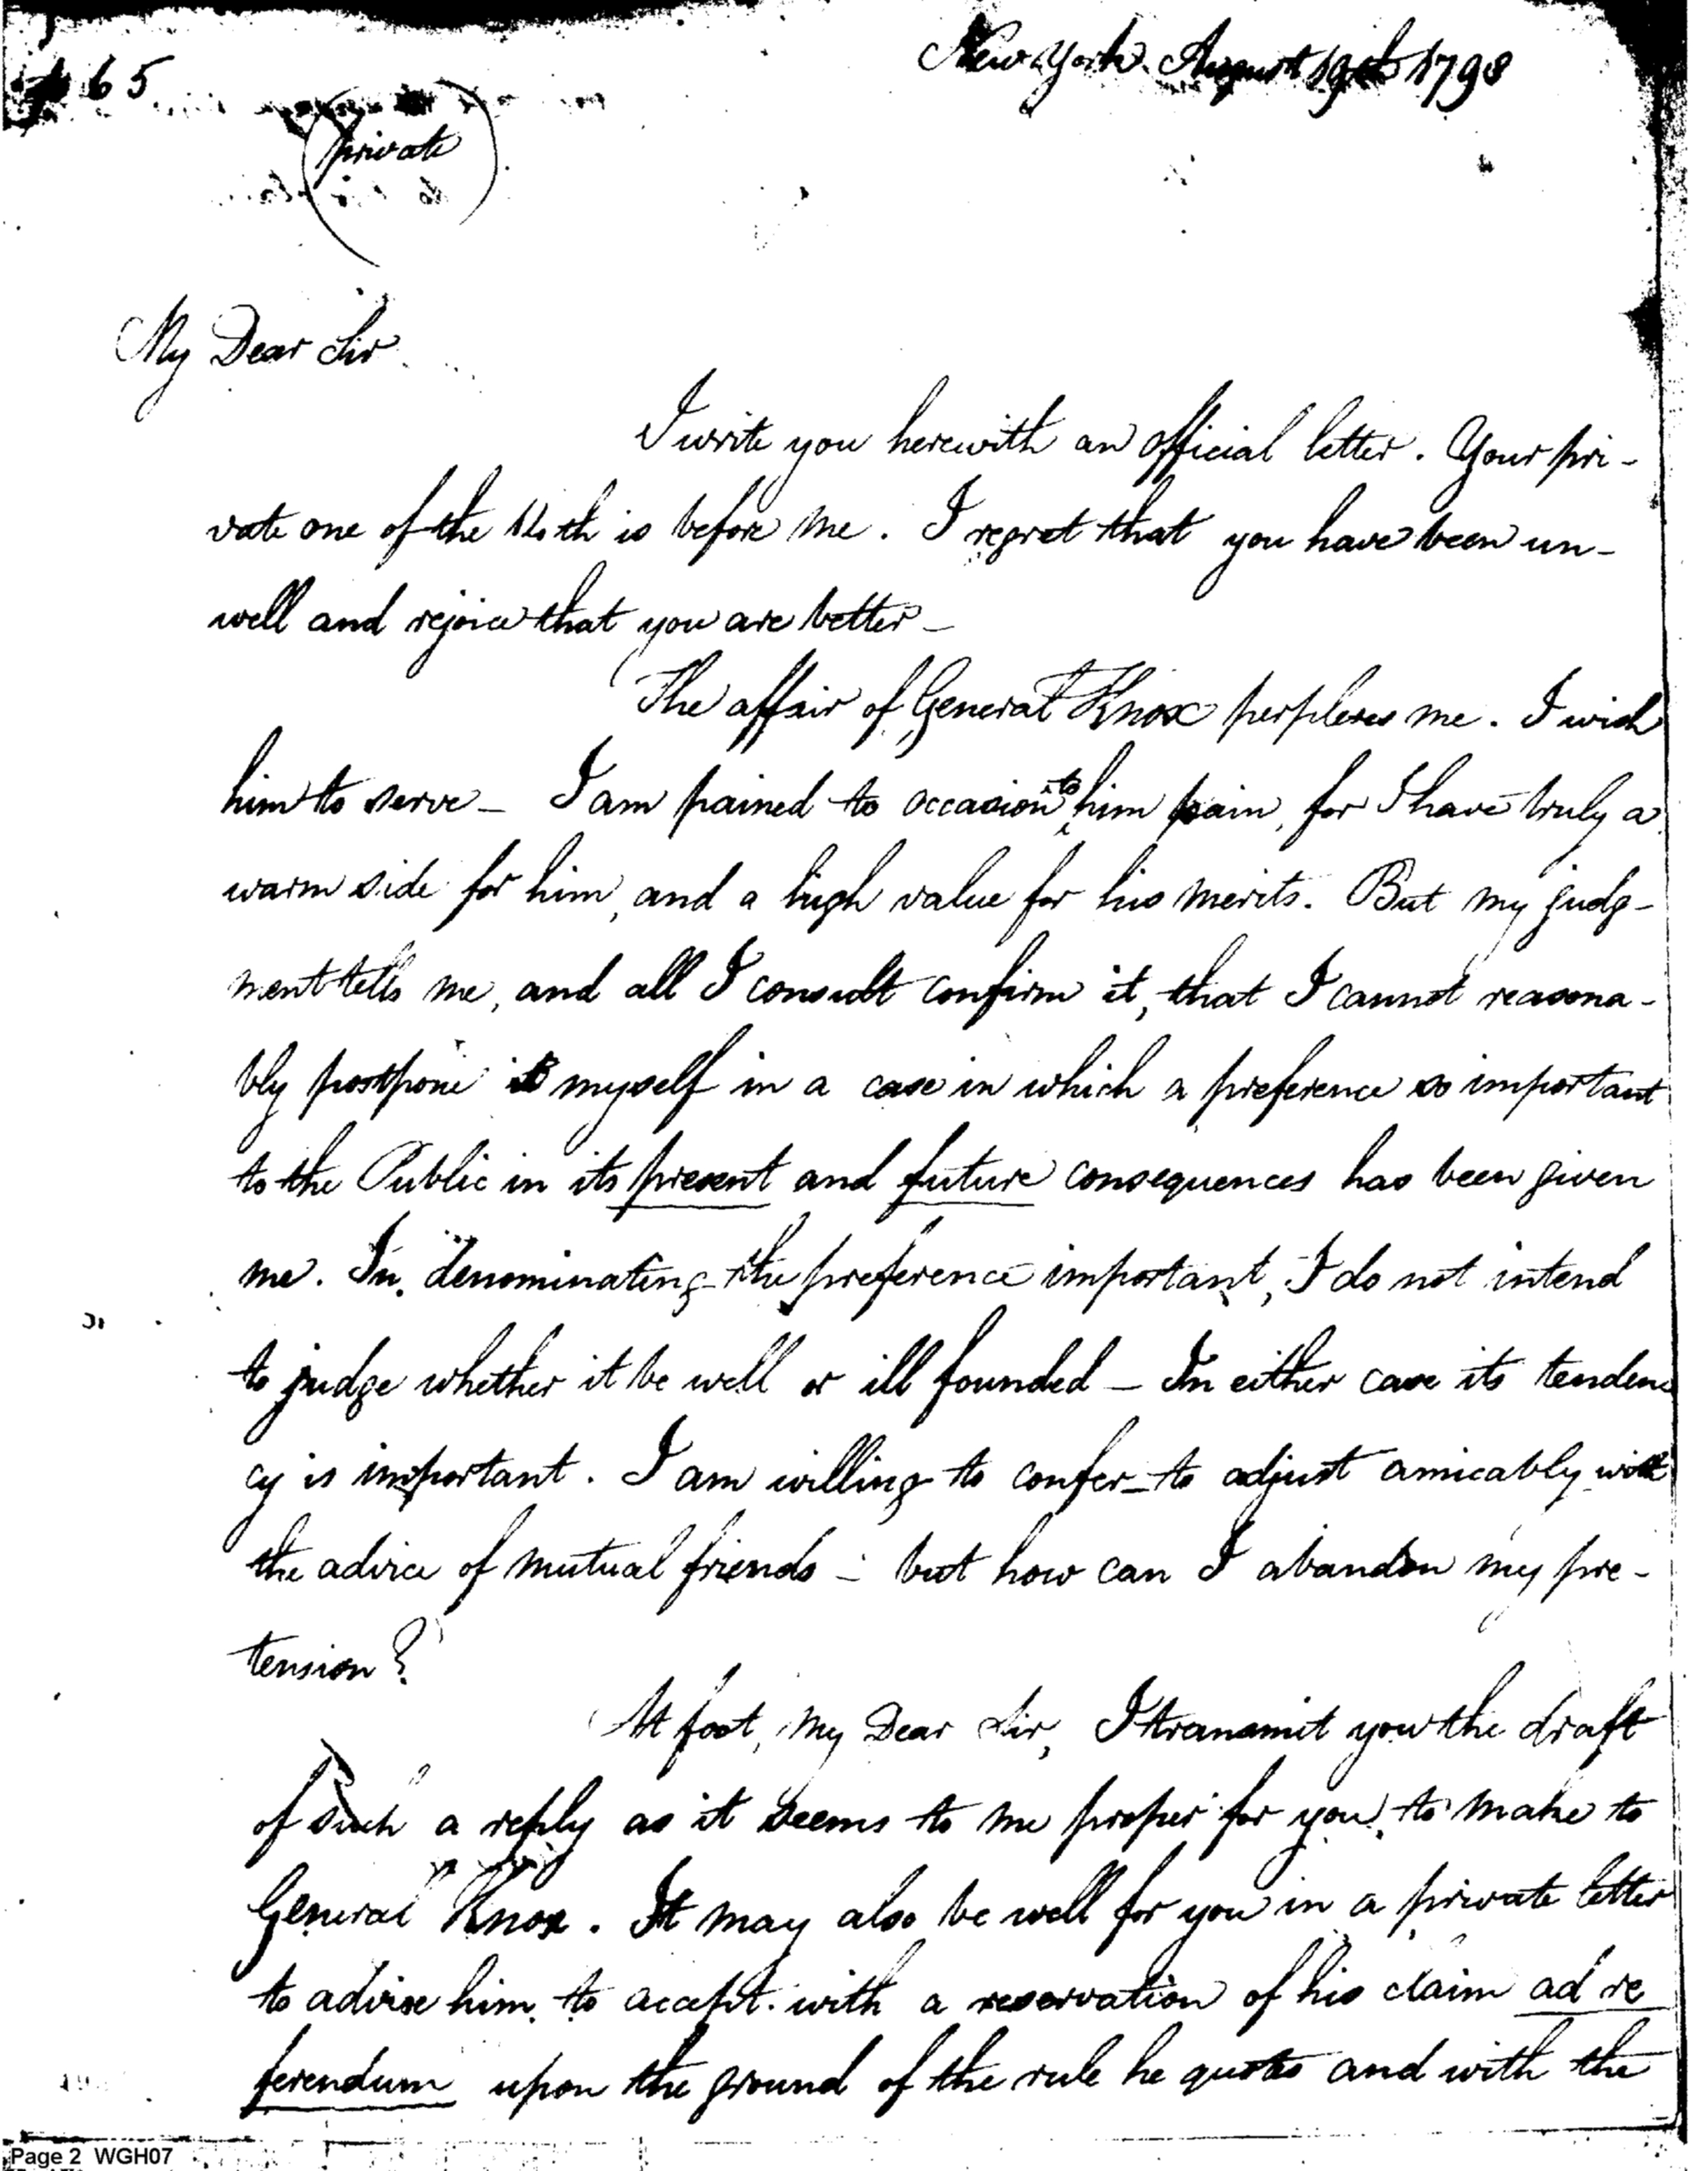 65
New York August 19th 1798
private
My Dear Sir
I write you herewith an official letter. Your pri-
vate one of the 16th is before me. I regret that you have been un-
well and rejoice that you are better -
The affair of General Knox perplexes me. I wish
him to serve - I am pained to occasion to him pain, for I have truly a
warm side for him, and a high value for his merits. But my judg-
ment tells me, and all I consult confirm it, that I cannot reasona-
bly postpone myself in a case in which a preference so important
to the Public in its present and future consequences has been given
me. In denominating the preference important, I do not intend
to judge whether it be well or ill founded - In either case its tenden
cy is important. I am willing to confer - to adjust amicably with
the advice of mutual friends - but how can I abandon my pre-
tension?
At foot, My Dear Sir, I transmit you the draft
of such a reply as it seems to me proper for you to make to
General Knox. It may also be well for you in a private letter
to advise him to accept with a reservation of his claim ad re
ferendum upon the ground of the rule he quotes and with the
Page 2 WGH07